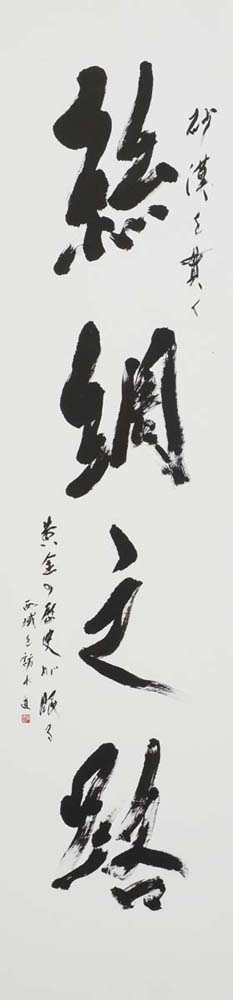 砂漠を貫く
絲綢之路
黄金の歴史が眠る
西域を訪